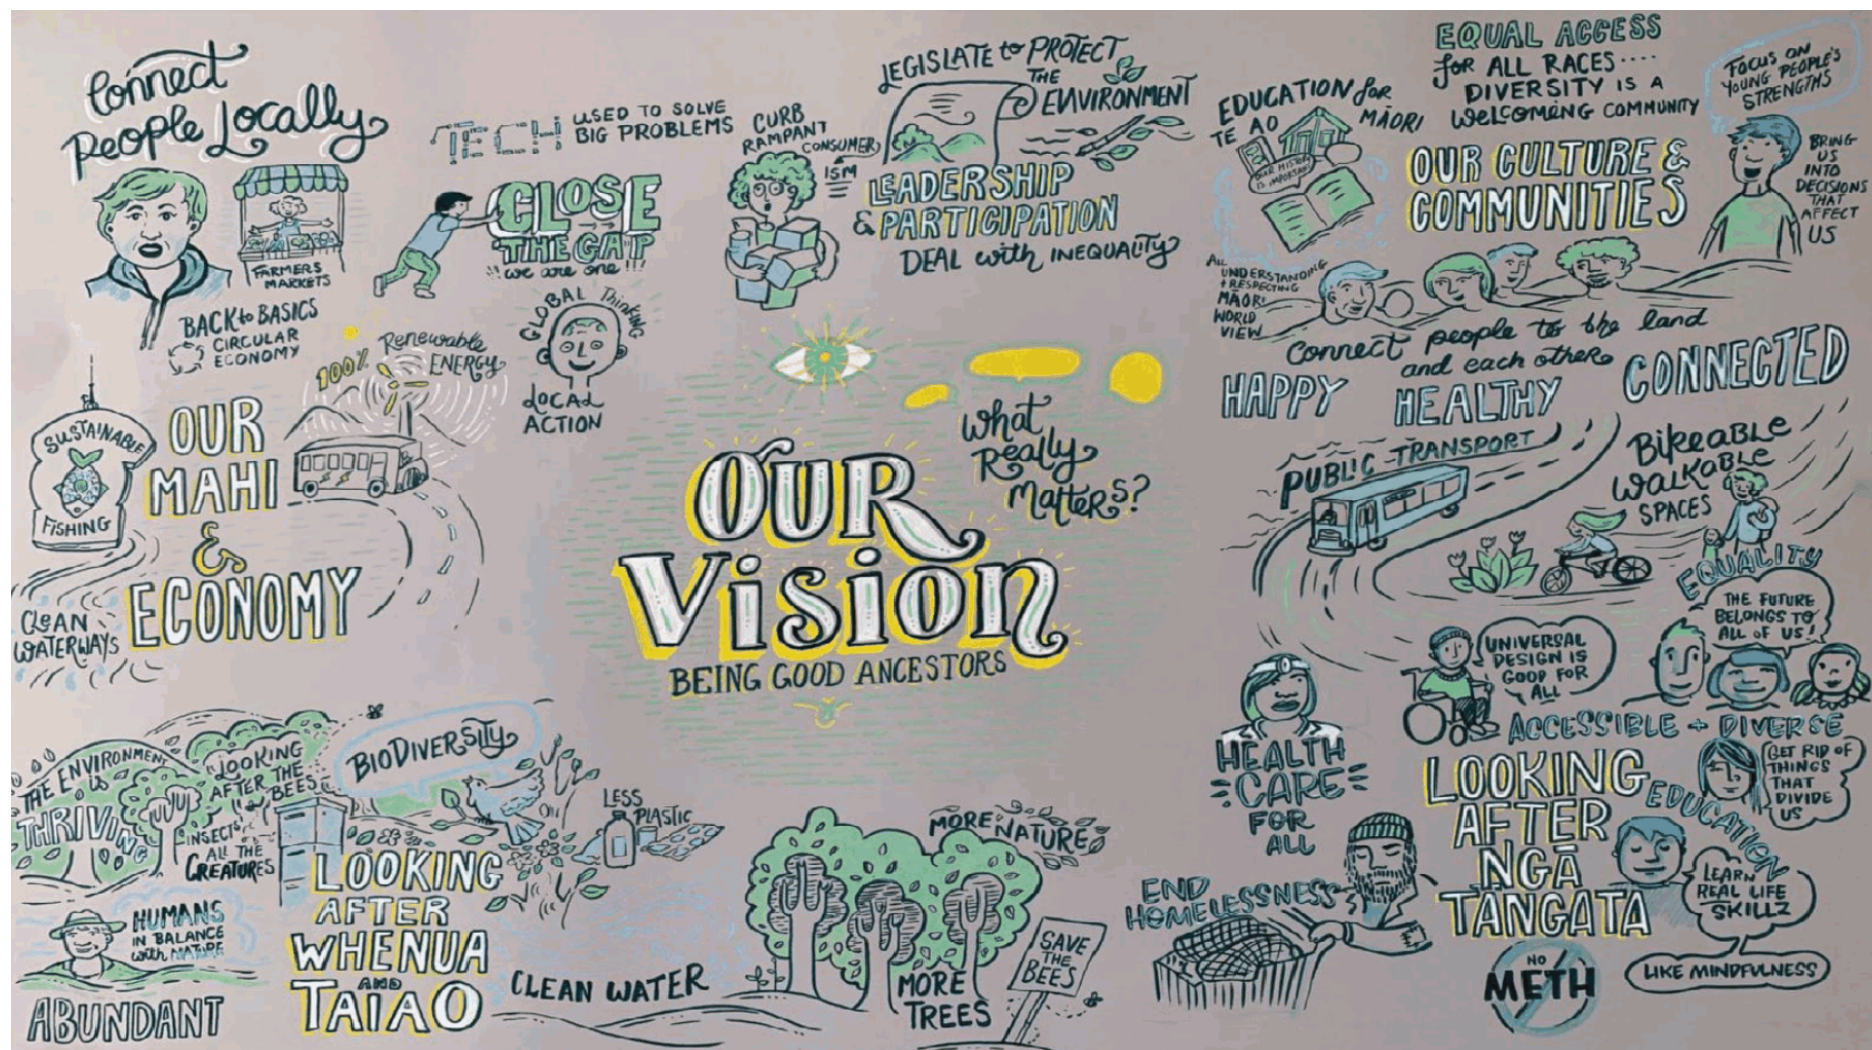 Connect
People Locally
FARMERS
MARKETS
BACK to BASICS
CIRCULAR
ECONOMY
TECH
USED TO SOLVE
BIG PROBLEMS
CLOSE
THE GAP
we are one !!!
GLOBAL Thinking
LOCAL
ACTION
100%
Renewable
ENERGY
SUSTAINABLE
FISHING
OUR
MAHI
&
ECONOMY
CLEAN
WATERWAYS
CURB
RAMPANT
CONSUMER
ISM
LEGISLATE to PROTECT
THE
ENVIRONMENT
LEADERSHIP
& PARTICIPATION
DEAL with INEQUALITY
EDUCATION for
TE AO
MĀORI
OUR HISTORY
IS IMPORTANT
EQUAL ACCESS
for ALL RACES ....
DIVERSITY IS A
WELCOMING COMMUNITY
OUR CULTURE &
COMMUNITIES
FOCUS ON
YOUNG PEOPLE'S
STRENGTHS
BRING
US
INTO
DECISIONS
THAT
AFFECT
US
ALL
UNDERSTANDING
+ RESPECTING
MĀORI
WORLD
VIEW
Connect people to the land
and each other
HAPPY
HEALTHY
CONNECTED
What
Really
Matters?
OUR
Vision
BEING GOOD ANCESTORS
PUBLIC TRANSPORT
BIKEABLE
WALKABLE
SPACES
EQUALITY
THE FUTURE
BELONGS TO
ALL OF US!
UNIVERSAL
DESIGN IS
GOOD FOR
ALL
ACCESSIBLE + DIVERSE
HEALTH
CARE
FOR
ALL
LOOKING
AFTER
NGĀ
TANGATA
EDUCATION
GET RID OF
THINGS
THAT
DIVIDE
US
LEARN
REAL LIFE
SKILLZ
LIKE MINDFULNESS
END
HOMELESSNESS
NO
METH
THE ENVIRONMENT
is
THRIVING
LOOKING
AFTER THE
BEES
INSECTS
ALL THE
CREATURES
BIODIVERSITY
LESS
PLASTIC
HUMANS
IN BALANCE
with NATURE
ABUNDANT
LOOKING
AFTER
WHENUA
AND
TAIAO
CLEAN WATER
MORE NATURE
MORE
TREES
SAVE
THE
BEES